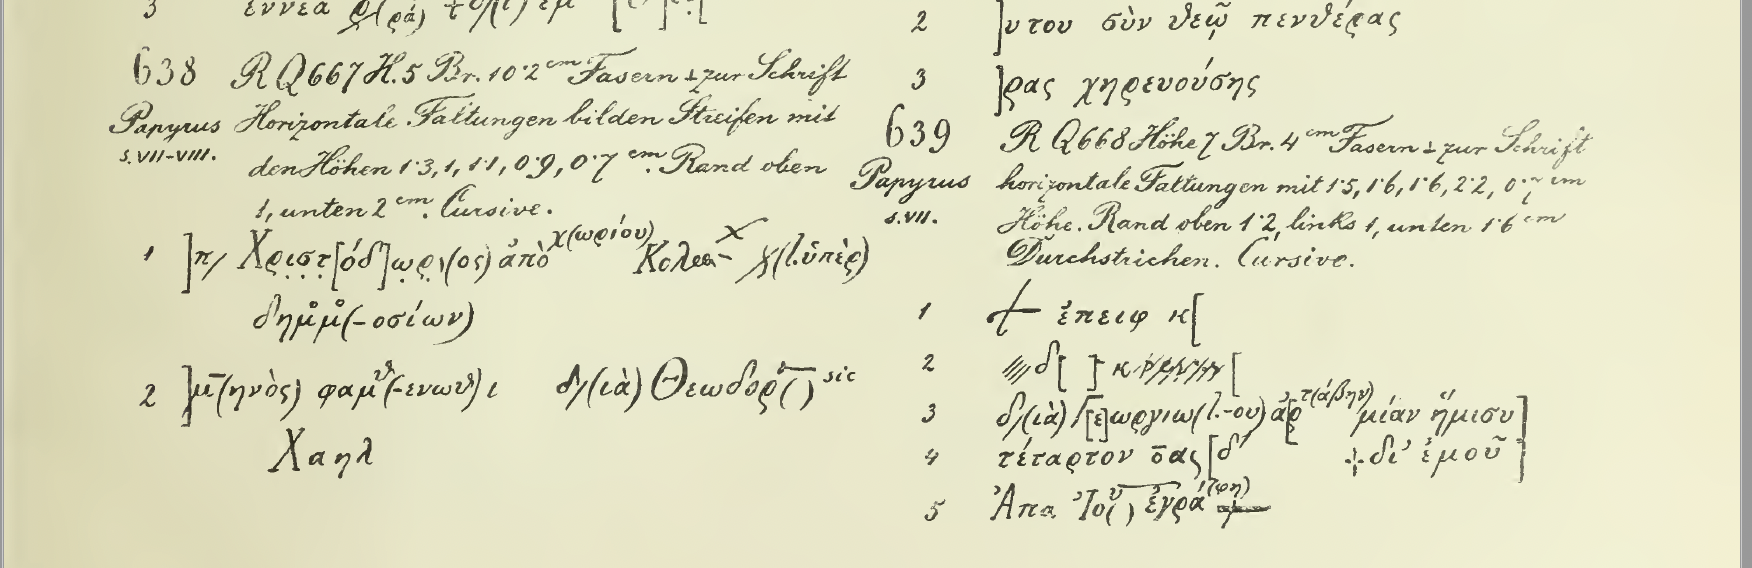 3 ἐννέα
638 R Q667 H. 5 Br. 10·2 cm Fasern ⊥ zur Schrift
Papyrus Horizontale Faltungen bilden Streifen mit
s. VII-VIII. den Höhen 1·3, 1, 1·1, 0·9, 0·7 cm. Rand oben
1, unten 2 cm. Cursive.
1 ]π/ Χριστ[όδ]ωρι(ος) ἀπὸ χ(ωρίου) (l. ὑπὲρ)
δημμ(-οσίων)
2 ]μ(ηνὸς) φαμθ(-ενωθ) ι δ/(ιὰ) Θεωδορ( ) sic
Χαηλ
2 ]υτου σὺν θεῷ πενθέρας
3 ]ρας χηρευούσης
639 R Q668 Höhe 7 Br. 4 cm Fasern ⊥ zur Schrift
Papyrus horizontale Faltungen mit 1·5, 1·6, 1·6, 2·2, cm
s. VII. Höhe. Rand oben 1·2, links 1, unten 1·6 cm
Durchstrichen. Cursive.
1 + ἐπειφ κ[
2 δ[ ] κ
3 δ/(ιὰ) Γ[ε]ωργιω (l. -ου) ἀρτ(άβην) μίαν ἥμισυ]
4 τέταρτον [δ +δι' ἐμοῦ ]
5 Ἀπα Ἰου( ) ἐγρά(φη) +